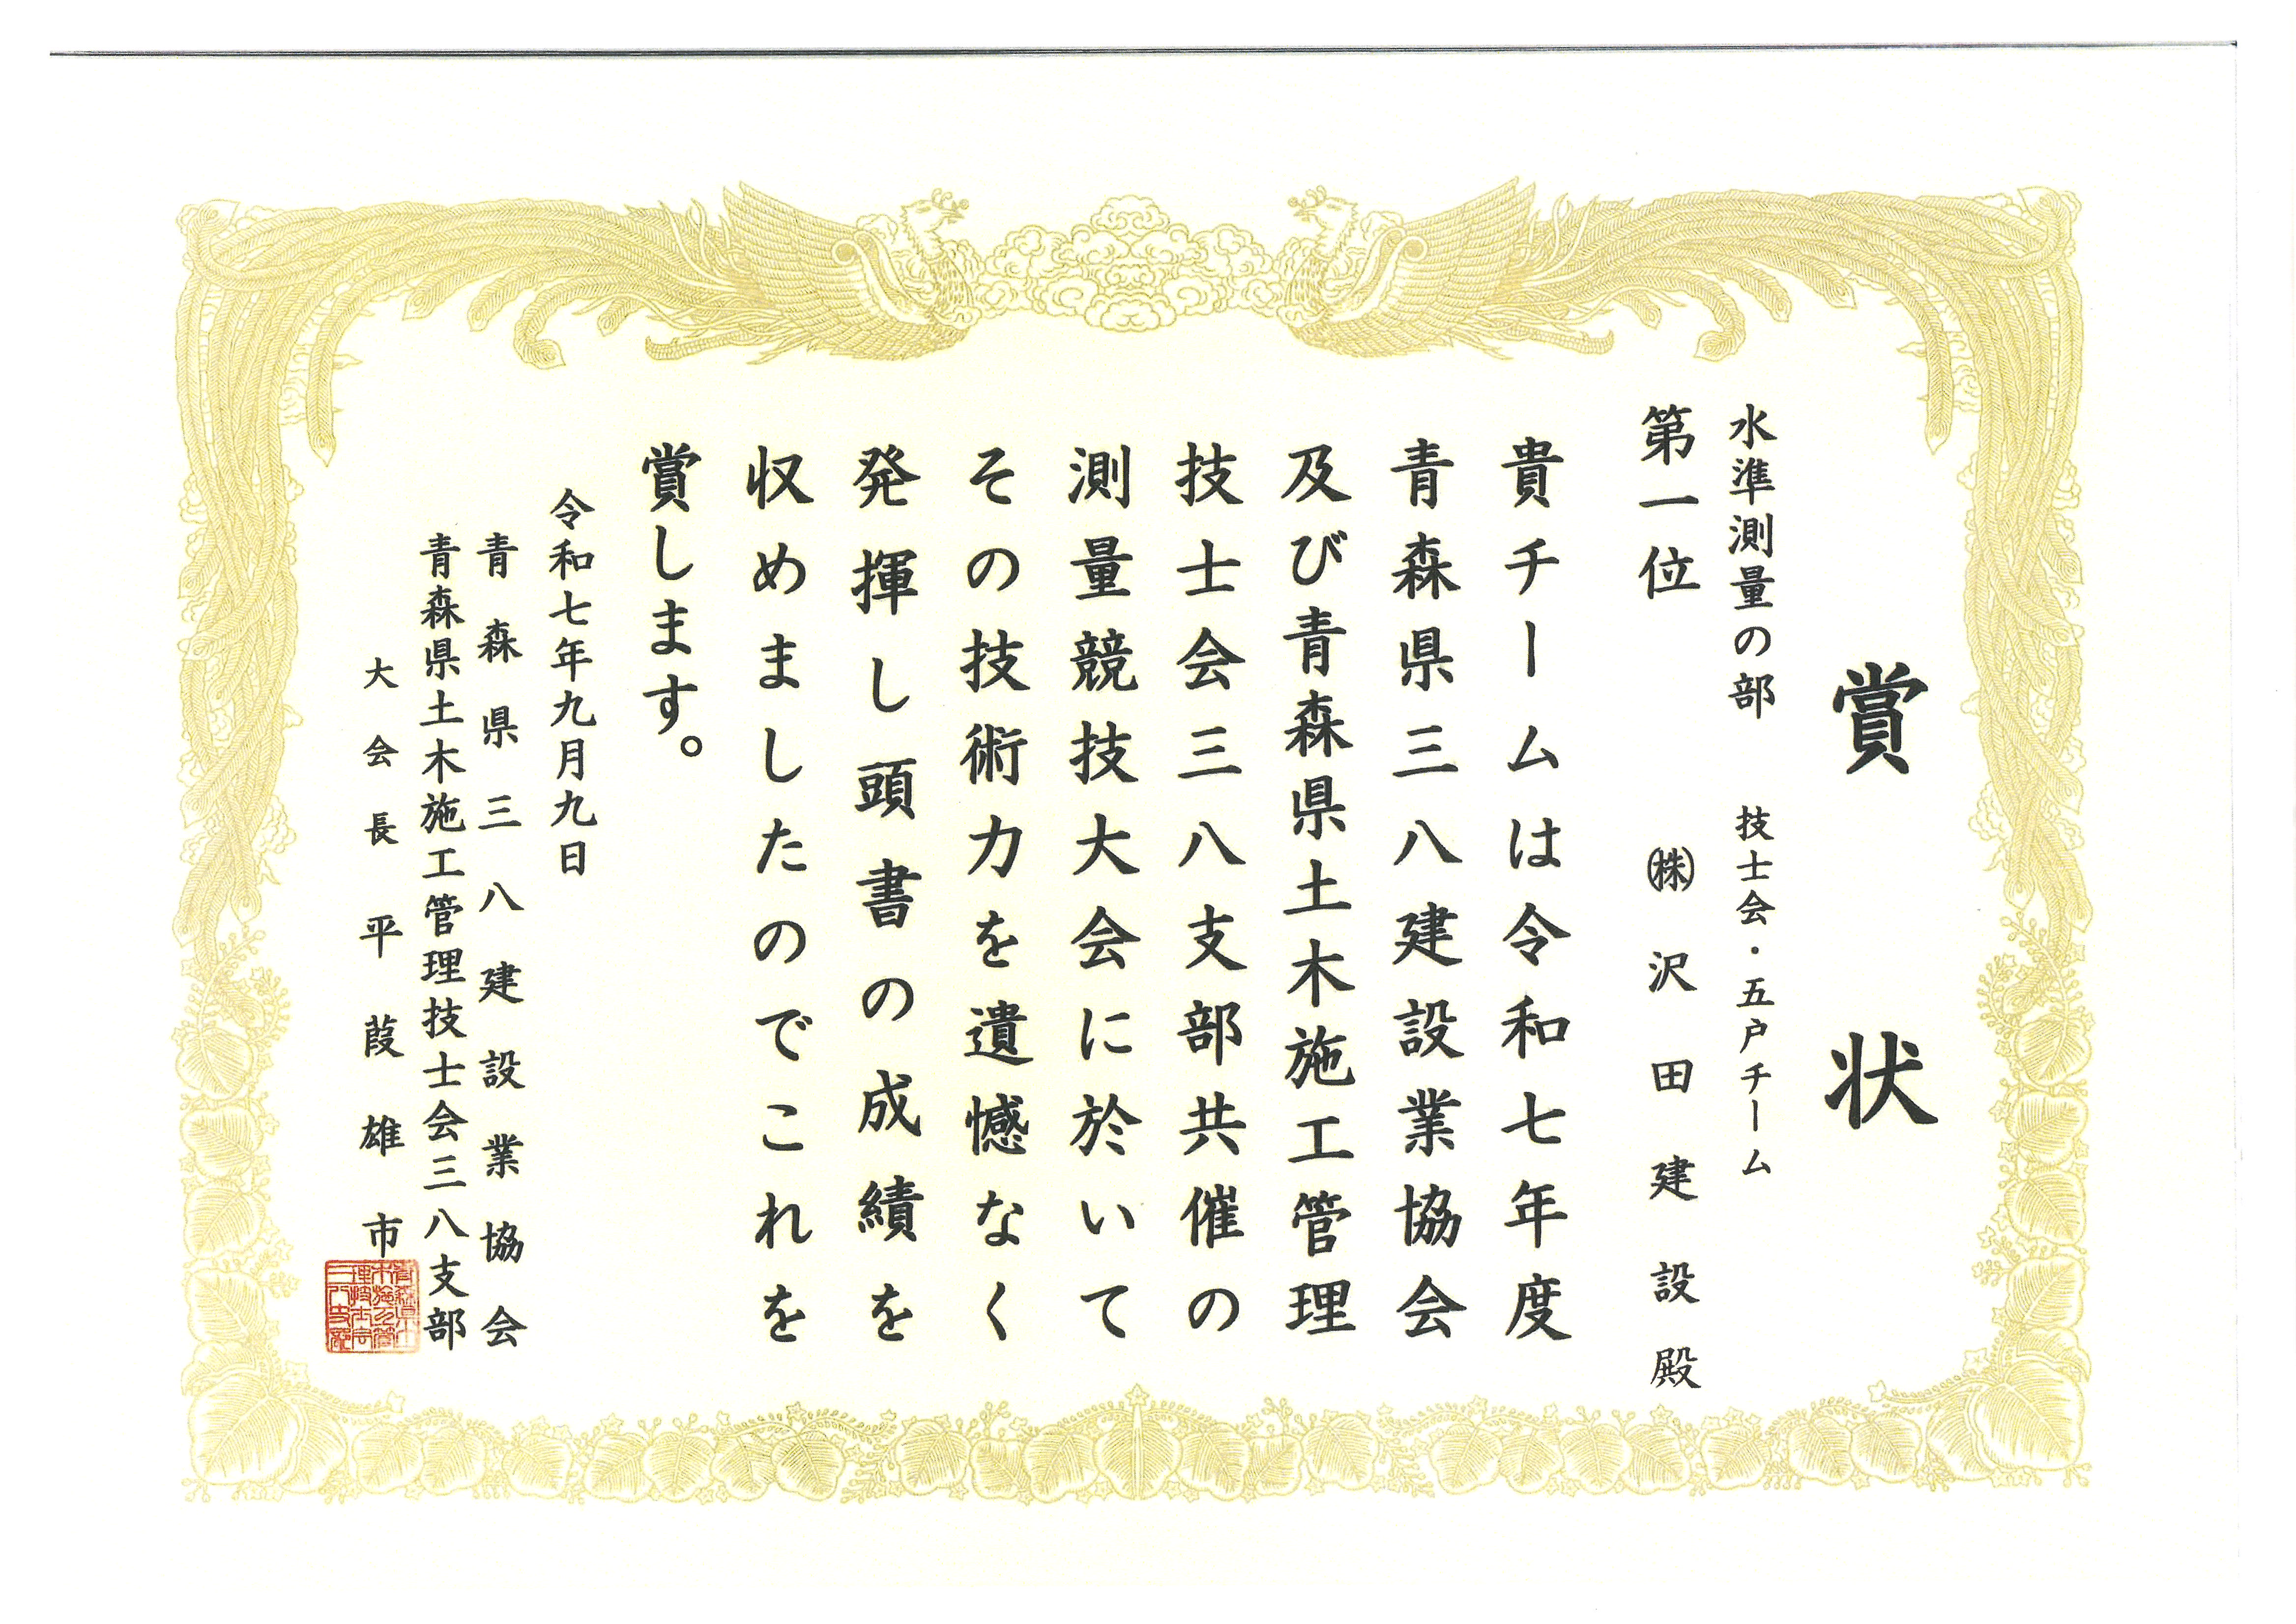 賞状
水準測量の部 技士会・五戸チーム
第一位 ㈱沢田建設殿
貴チームは令和七年度
青森県三八建設業協会
及び青森県土木施工管理
技士会三八支部共催の
測量競技大会に於いて
その技術力を遺憾なく
発揮し頭書の成績を
収めましたのでこれを
賞します。
令和七年九月九日
青森県三八建設業協会
青森県土木施工管理技士会三八支部
大会長 平葭雄市